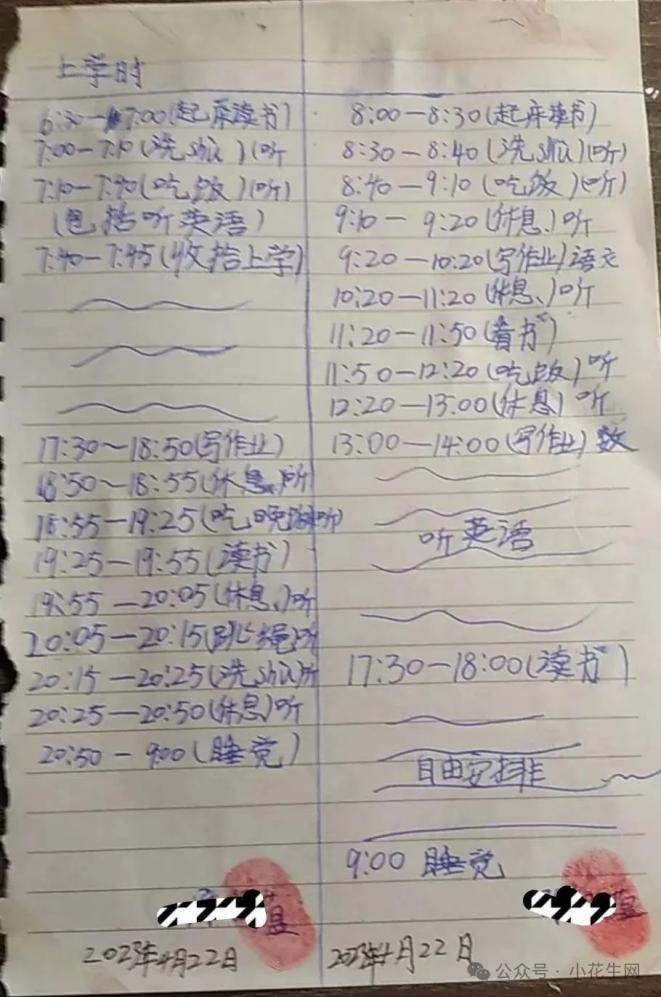 上学时
6:30—7:00(起床读书)
7:00—7:10(洗shu)(听)
7:10—7:40(吃饭)(听)
(包括听英语)
7:40—7:45(收拾上学)
17:30～18:50(写作业)
18:50—18:55(休息)听
18:55—19:25(吃晚饭)听)
19:25—19:55(读书)
19:55—20:05(休息)听
20:05—20:15(跳绳)听
20:15—20:25(洗shu)听
20:25—20:50(休息)听
20:50—9:00(睡觉)
2023年4月22日
8:00—8:30(起床读书)
8:30—8:40(洗shu)(听)
8:40—9:10(吃饭)(听)
9:10—9:20(休息)听
9:20—10:20(写作业)语文
10:20—11:20(休息)听
11:20—11:50(看书)
11:50—12:20(吃饭)听
12:20—13:00(休息)听
13:00—14:00(写作业)数
听英语
17:30—18:00(读书)
自由安排
9:00 睡觉
2023年4月22日
公众号·小花生网